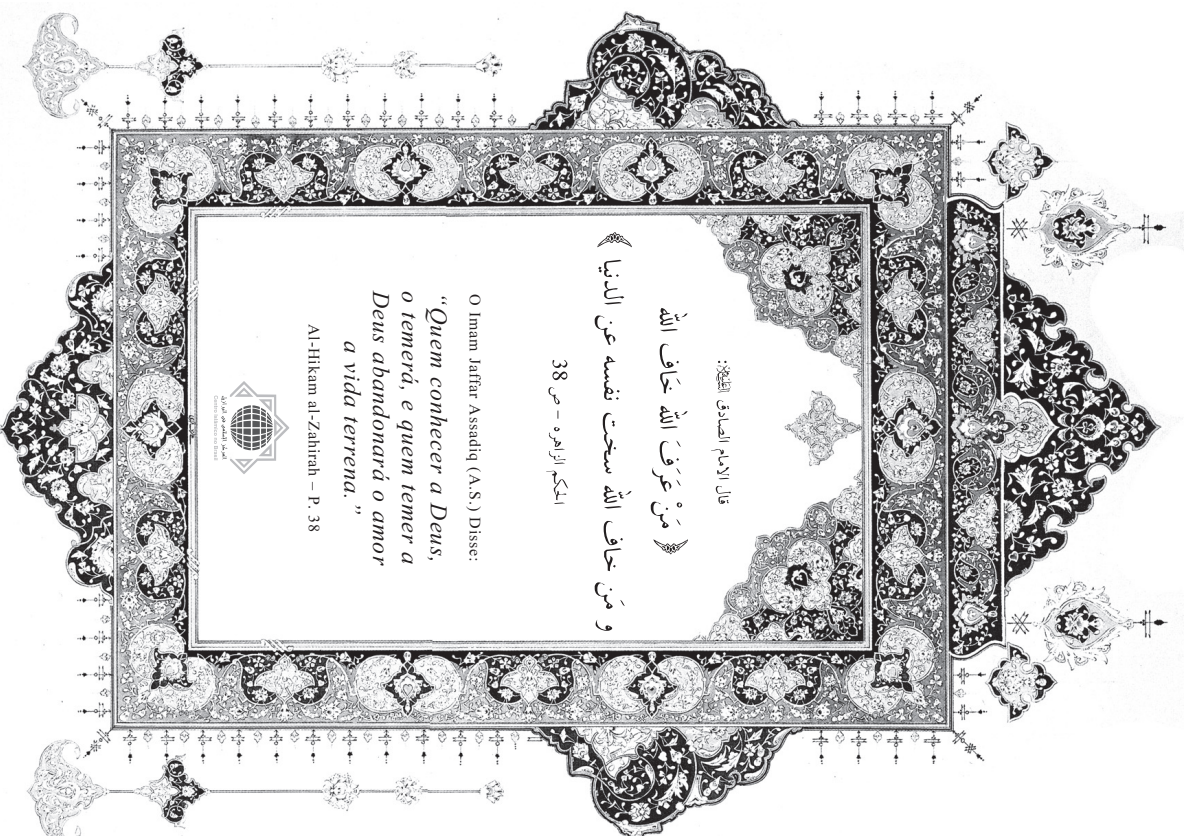 قال الامام الصادق :
﴿ مَنْ عَرَفَ اللّٰه خَاف اللّٰه
و مَن خاف اللّٰه سخت نفسه عن الدنيا ﴾
الحكم الزاهره - ص 38
O Imam Jaffar Assadiq (A.S.) Disse:
“Quem conhecer a Deus,
o temerá, e quem temer a
Deus abandonará o amor
a vida terrena.”
Al-Hikam al-Zahirah – P. 38
Centro Islâmico no Brasil